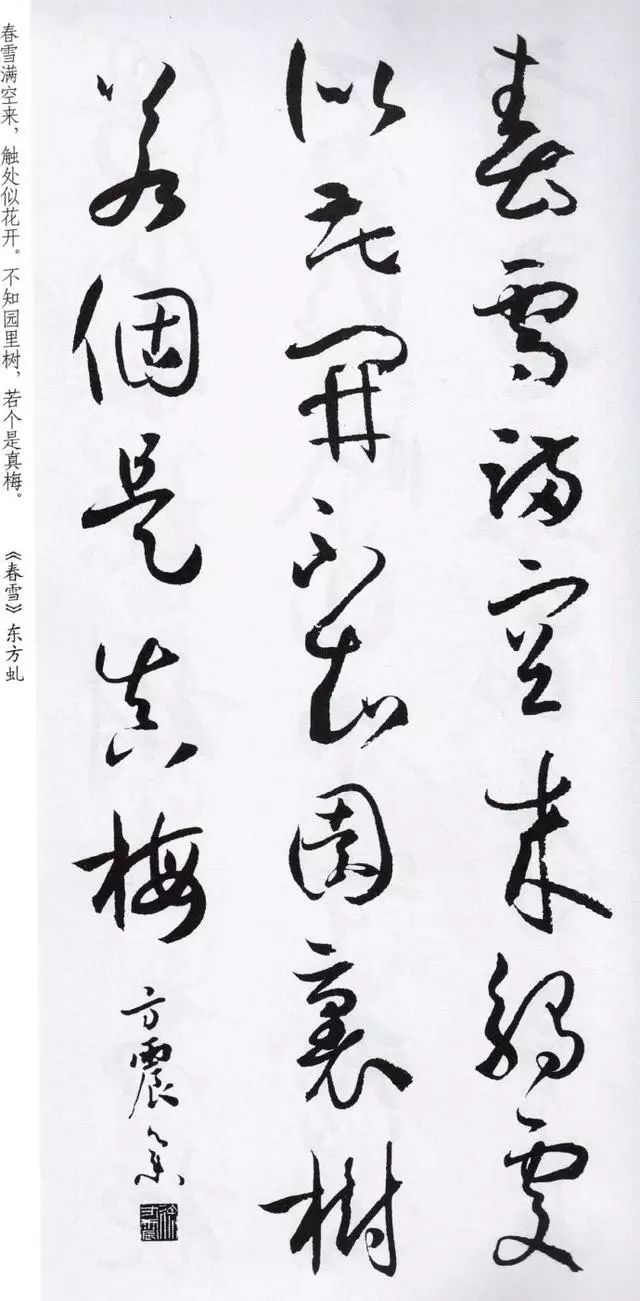 春雪满空來觸處
似花開不知園裏樹
若個是真梅
方震
春雪满空来，触处似花开。不知园里树，若个是真梅。 《春雪》东方虬